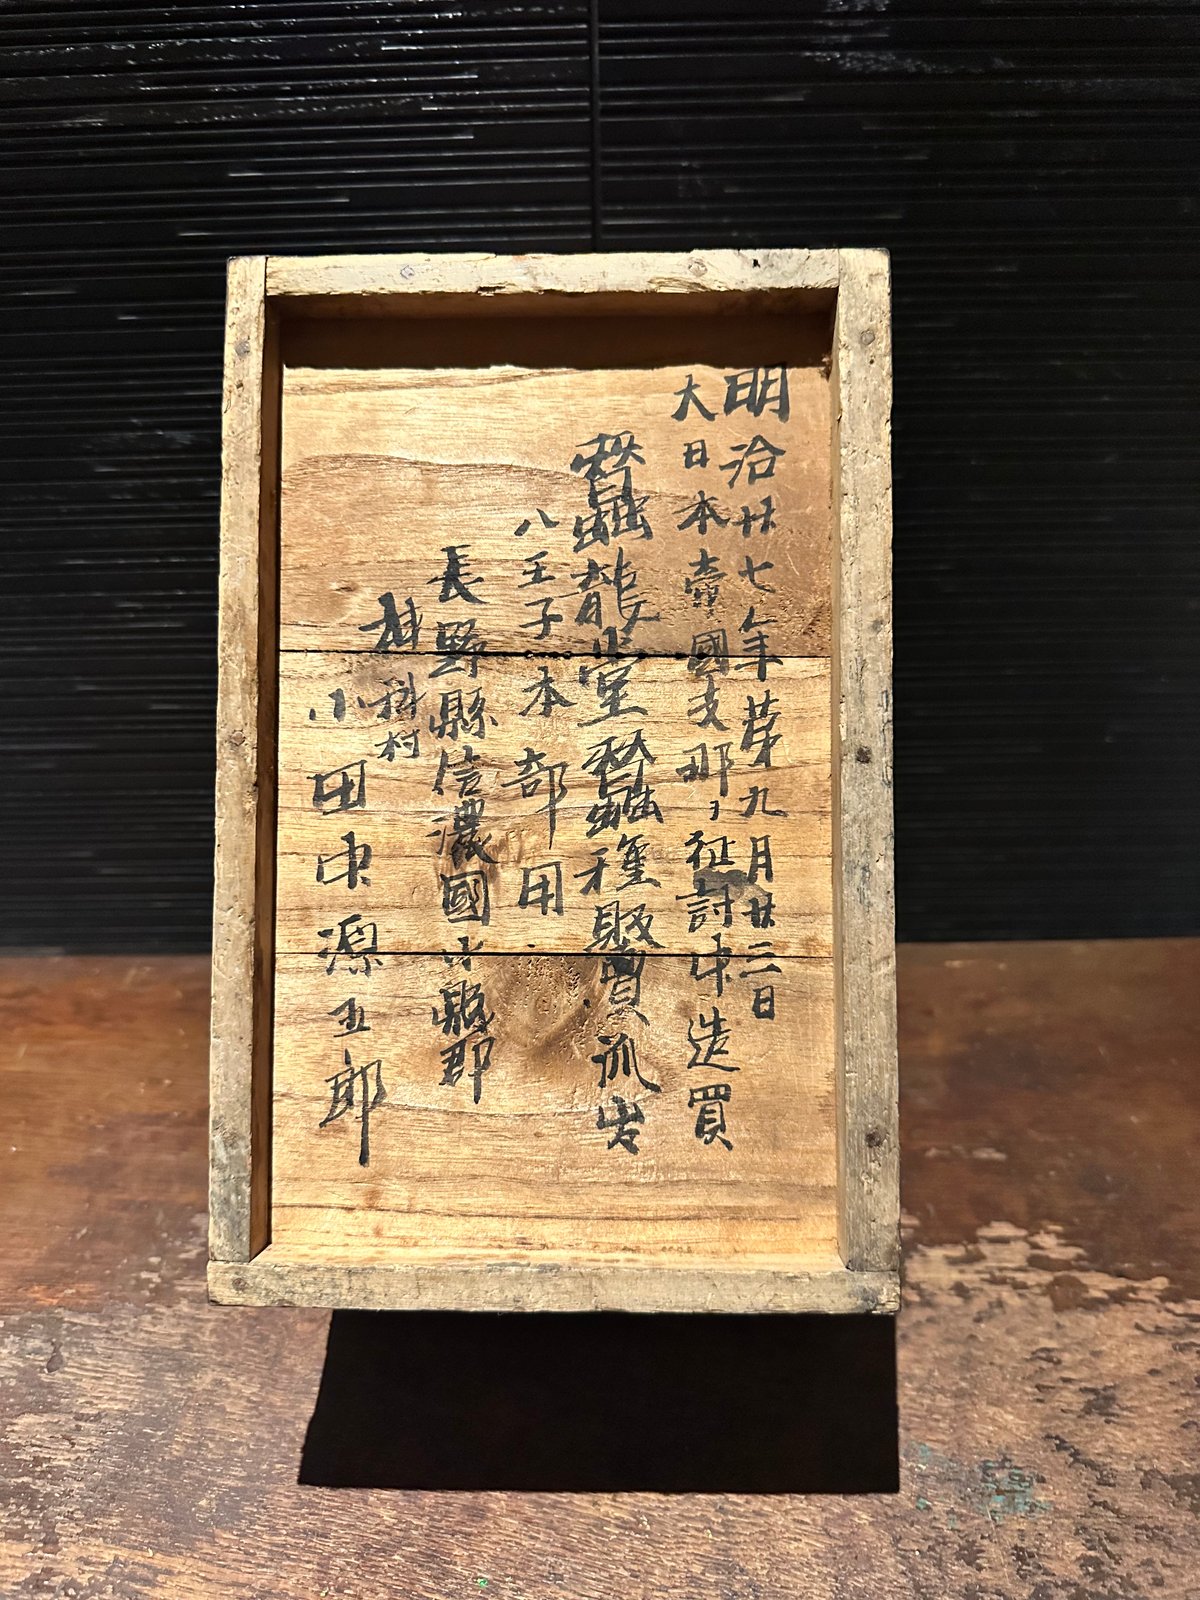 明治廿七年第九月廿三日
大日本壹國支那ヲ征討中造買
蠶龍堂蠶種販賣
八王子本部用
長野縣信濃國小縣郡
村
小田中源五郎